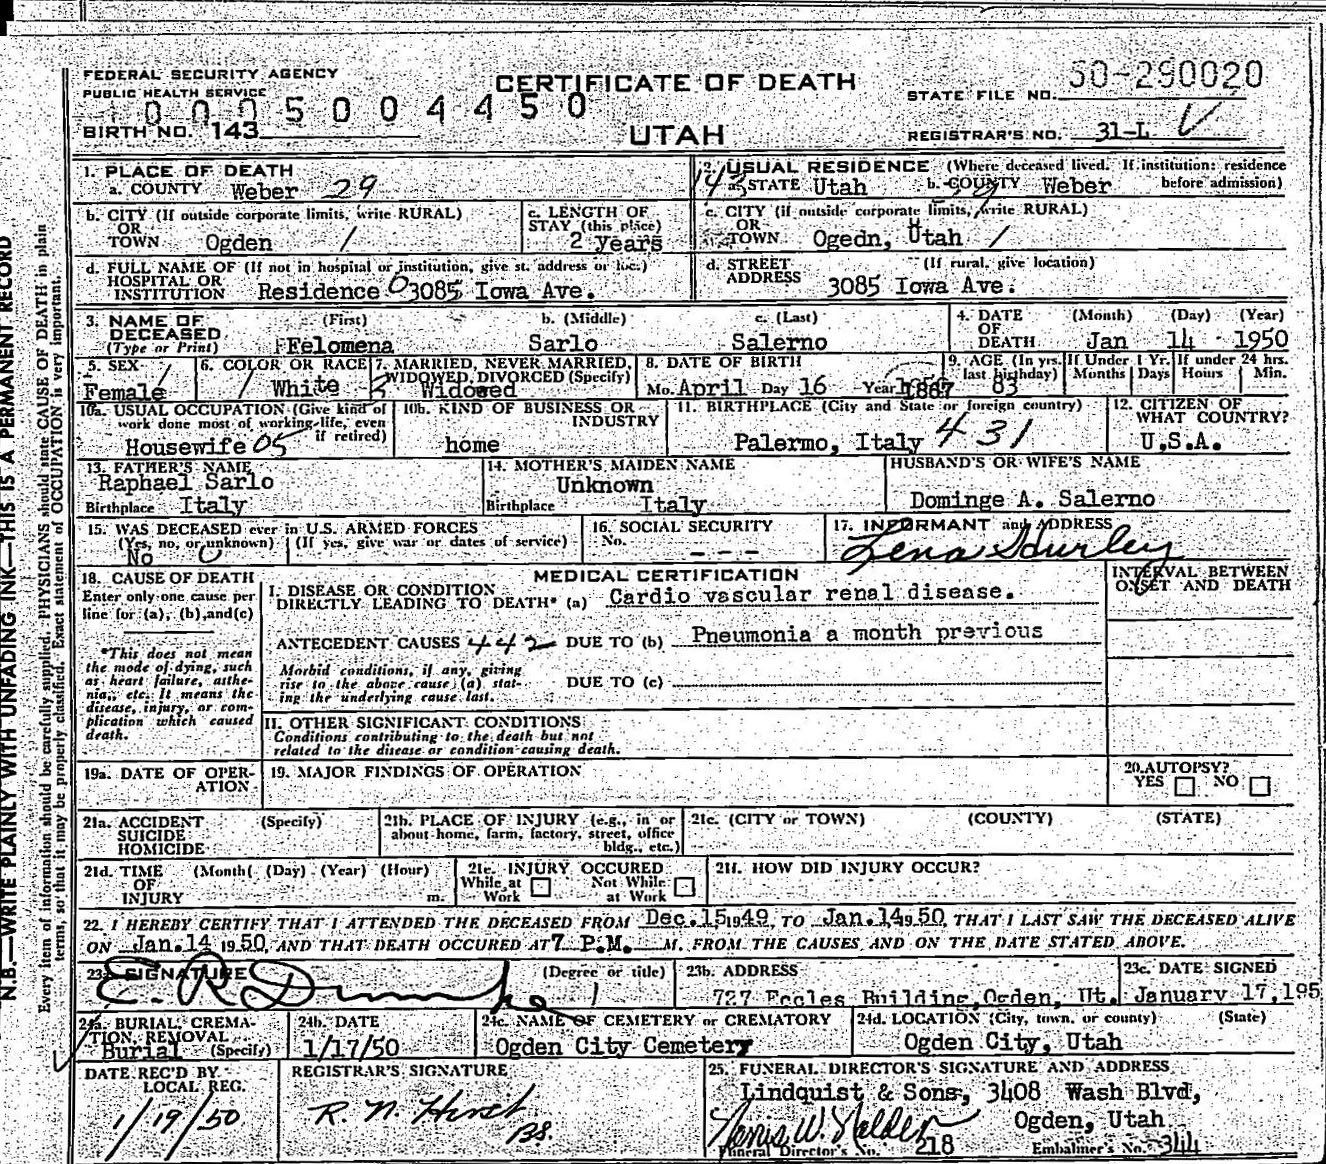 FEDERAL SECURITY AGENCY
PUBLIC HEALTH SERVICE
CERTIFICATE OF DEATH
50-290020
STATE FILE NO.
0005004450
BIRTH NO. 143
UTAH
REGISTRAR'S NO. 31-L
1. PLACE OF DEATH
a. COUNTY Weber 29
2. USUAL RESIDENCE (Where deceased lived. If institution: residence before admission)
143 a. STATE Utah b. COUNTY Weber
b. CITY (If outside corporate limits, write RURAL)
OR
TOWN Ogden 1
c. LENGTH OF
STAY (this place)
2 years
c. CITY (if outside corporate limits, write RURAL)
OR
TOWN Ogedn, Utah 1
d. FULL NAME OF (If not in hospital or institution, give st. address or loc.)
HOSPITAL OR
INSTITUTION Residence 3085 Iowa Ave.
d. STREET (If rural, give location)
ADDRESS
3085 Iowa Ave.
3. NAME OF (First) b. (Middle) c. (Last)
DECEASED
(Type or Print) Felomena Sarlo Salerno
4. DATE (Month) (Day) (Year)
OF
DEATH Jan 14 1950
5. SEX
Female
6. COLOR OR RACE
White
7. MARRIED, NEVER MARRIED,
WIDOWED, DIVORCED (Specify)
Widowed
8. DATE OF BIRTH
Mo. April Day 16 Year
9. AGE (In yrs. last birthday) 83
If Under 1 Yr. Months Days
If under 24 hrs. Hours Min.
10a. USUAL OCCUPATION (Give kind of
work done most of working life, even
if retired)
Housewife 05
10b. KIND OF BUSINESS OR
INDUSTRY
home
11. BIRTHPLACE (City and State or foreign country)
Palermo, Italy 431
12. CITIZEN OF
WHAT COUNTRY?
U.S.A.
13. FATHER'S NAME
Raphael Sarlo
Birthplace Italy
14. MOTHER'S MAIDEN NAME
Unknown
Birthplace Italy
HUSBAND'S OR WIFE'S NAME
Dominge A. Salerno
15. WAS DECEASED ever in U.S. ARMED FORCES
(Yes, no, or unknown) (If yes, give war or dates of service)
No 0
16. SOCIAL SECURITY
No. - - -
17. INFORMANT and ADDRESS
Lena Hurley
18. CAUSE OF DEATH
Enter only one cause per
line for (a), (b), and (c)
*This does not mean
the mode of dying, such
as heart failure, asthe-
nia, etc. It means the
disease, injury, or com-
plication which caused
death.
MEDICAL CERTIFICATION
I. DISEASE OR CONDITION
DIRECTLY LEADING TO DEATH* (a) Cardio vascular renal disease.
ANTECEDENT CAUSES 442 DUE TO (b) Pneumonia a month previous
Morbid conditions, if any, giving
rise to the above cause (a) stat-
ing the underlying cause last.
DUE TO (c)
II. OTHER SIGNIFICANT CONDITIONS
Conditions contributing to the death but not
related to the disease or condition causing death.
INTERVAL BETWEEN
ONSET AND DEATH
19a. DATE OF OPER-
ATION
19. MAJOR FINDINGS OF OPERATION
20. AUTOPSY?
YES NO
21a. ACCIDENT (Specify)
SUICIDE
HOMICIDE
21b. PLACE OF INJURY (e.g., in or
about home, farm, factory, street, office
bldg., etc.)
21c. (CITY or TOWN) (COUNTY) (STATE)
21d. TIME (Month( (Day) (Year) (Hour)
OF
INJURY m.
21e. INJURY OCCURED
While at Work Not While at Work
21f. HOW DID INJURY OCCUR?
22. I HEREBY CERTIFY THAT I ATTENDED THE DECEASED FROM Dec. 15, 1949, TO Jan. 14, 1950, THAT I LAST SAW THE DECEASED ALIVE
ON Jan. 14 1950, AND THAT DEATH OCCURED AT 7 P.M. M. FROM THE CAUSES AND ON THE DATE STATED ABOVE.
23. SIGNATURE (Degree or title)
E. R.
23b. ADDRESS
727 Eccles Building, Ogden, Ut.
23c. DATE SIGNED
January 17, 195
24a. BURIAL, CREMA-
TION, REMOVAL
Burial (Specify)
24b. DATE
1/17/50
24c. NAME OF CEMETERY or CREMATORY
Ogden City Cemetery
24d. LOCATION (City, town, or county) (State)
Ogden City, Utah
DATE REC'D BY
LOCAL REG.
1/19/50
REGISTRAR'S SIGNATURE
R. N. Hirst
BS.
25. FUNERAL DIRECTOR'S SIGNATURE AND ADDRESS
Lindquist & Sons, 3408 Wash Blvd,
Ogden, Utah
Funeral Director's No. 218 Embalmer's No. 344
N.B.—WRITE PLAINLY WITH UNFADING INK—THIS IS A PERMANENT RECORD
Every item of information should be carefully supplied. PHYSICIANS should state CAUSE OF DEATH in plain
terms, so that it may be properly classified. Exact statement of OCCUPATION is very important.